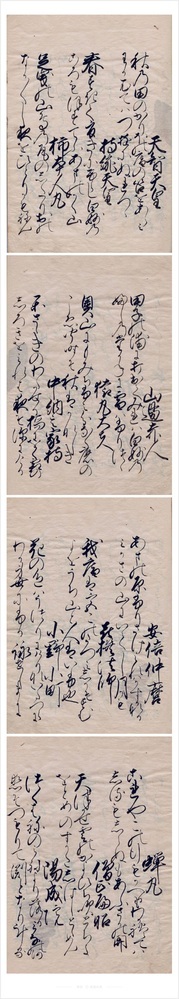 天智天皇
秋乃田のかりほの庵の苫をあらみ
わか衣手は露にぬれつゝ
持統天皇
春過て夏きにけらし白妙の
ころもほすてふあまのかく山
柿本人丸
足曳の山鳥の尾のしたり尾の
なか〳〵し夜をひとりかもねん
山邊赤人
田子の浦に打出てみれは白妙の
ふしの高ねに雪はふりつゝ
猿丸大夫
奥山にもみちふみ分鳴鹿の
こゑきく時そ秋はかなしき
中納言家持
かさゝきのわたせる橋にをく霜の
しろきをみれは夜そ深にける
安倍仲麿
あまの原ふりさけみれはかすかなる
みかさの山に出し月かも
喜撰法師
我庵は都のたつみしかそすむ
世をうち山と人はいふ也
小野小町
花の色はうつりにけりないたつらに
わか身世にふる詠せしまに
蝉丸
これやこの行もかへるもわかれては
しるもしらぬもあふさかの関
僧正遍昭
天津風雲のかよひち吹とちよ
をとめのすかたしはしとゝめん
陽成院
つくはねの峯よりおつるみなの川
恋そつもりて淵となりける